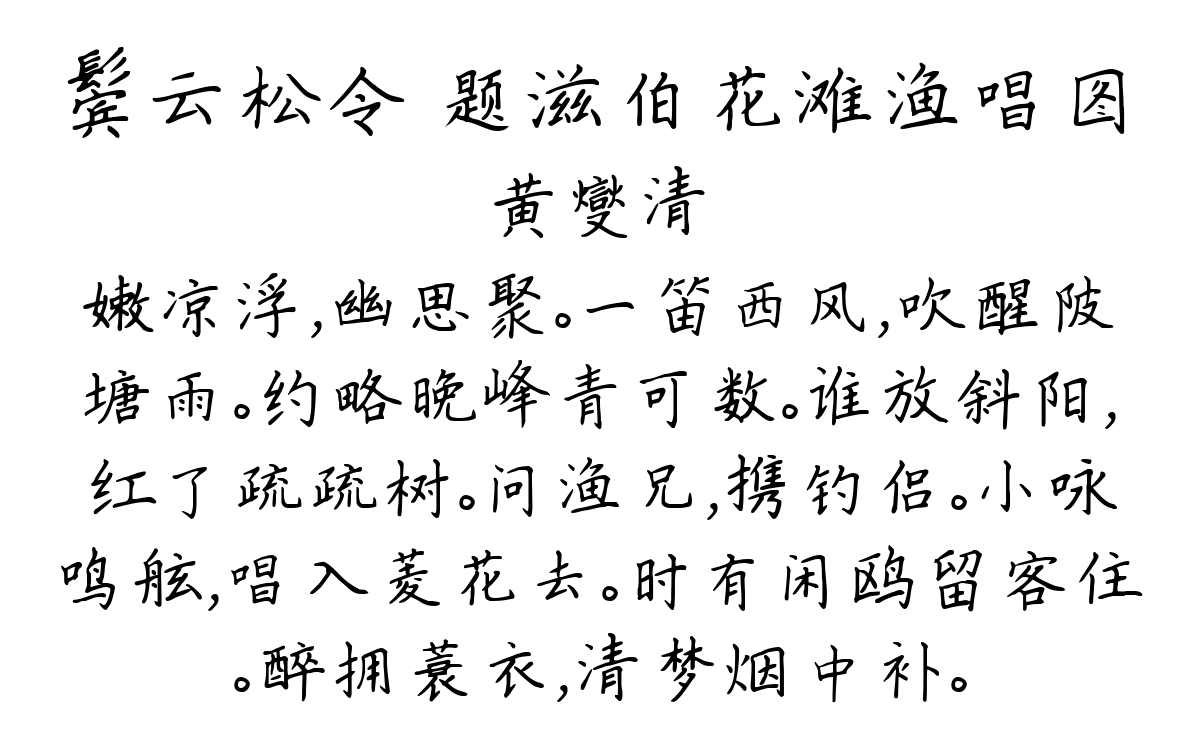 鬓云松令 题滋伯花滩渔唱图
黄燮清
嫩凉浮,幽思聚。一笛西风,吹醒陂
塘雨。约略晚峰青可数。谁放斜阳,
红了疏疏树。问渔兄,携钓侣。小咏
鸣舷,唱入菱花去。时有闲鸥留客住
。醉拥蓑衣,清梦烟中补。